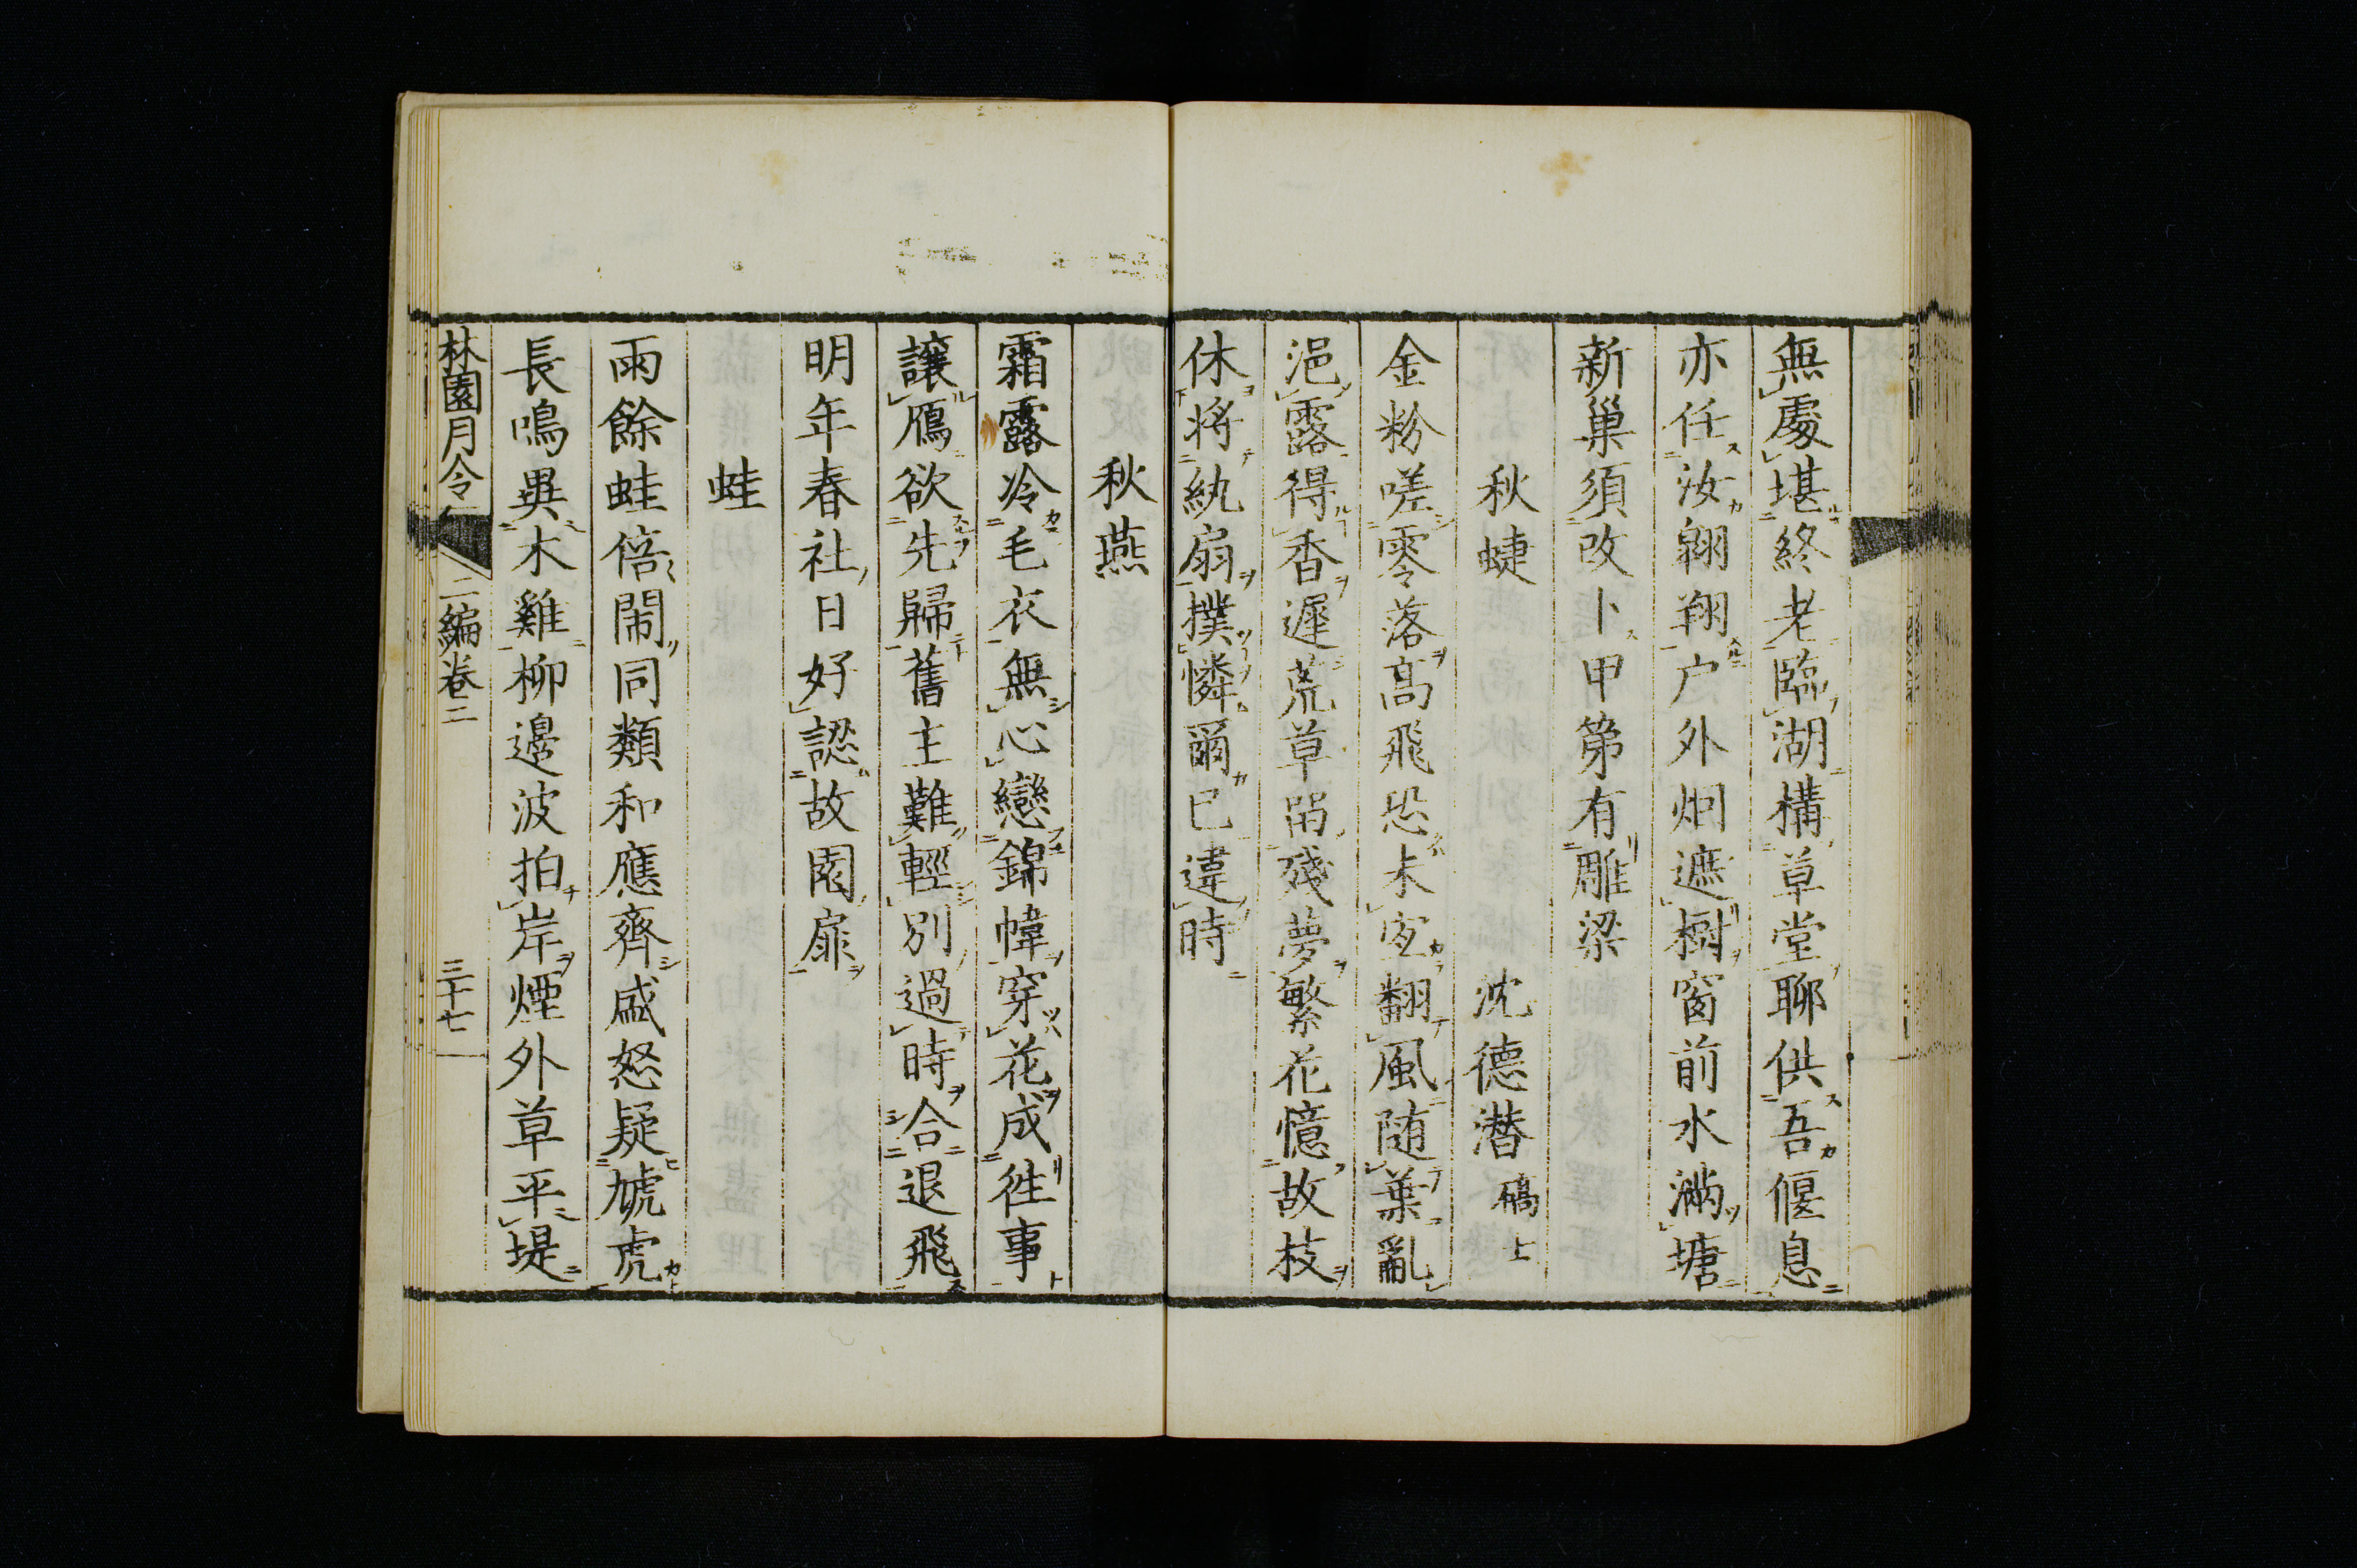 無處堪終老臨湖構草堂聊供吾偃息
亦任汝翱翔户外烟遮樹窗前水滿塘
新巢須改卜甲第有雕梁
秋蜨 沈德潜 礄上
金粉嗟零落高飛恐未宐翻風随葉亂
浥露得香遲荒草留殘夢繁花憶故枝
休將紈扇撲憐爾已違時
秋燕
霜露冷毛衣無心戀錦幃穿花成徃事
讓鴈欲先歸舊主難輕别過時合退飛
明年春社日好認故園扉
蛙
雨餘蛙倍鬧同類和應齊盛怒疑虓虎
長鳴異木雞柳邊波拍岸煙外草平堤
林園月令 二編卷二 三十七